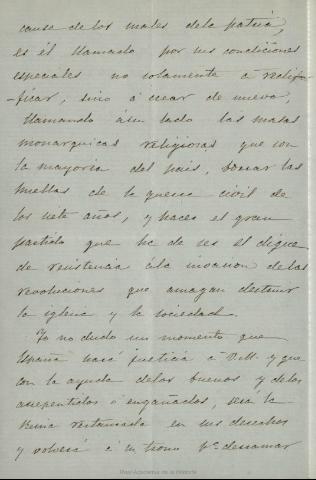 causa de los males dela patria,
es él llamado por sus condiciones
especiales no solamente á rectifi-
-ficar, sinó á crear de nuevo,
llamando á un lado las masas
monarquicas religiosas que son
la mayoria del pais, borrar las
huellas de la guerra civil de
los siete años, y hacer el gran
partido que ha de ser el dique
de resistencia ála invasion delas
revoluciones que amagan destruir
la iglesia y la sociedad.
Yo no dudo un momento que
España hará justicia á V.M. y que
con la ayuda delos buenos y delos
arrepentidos ó engañados, será la
Reina restaurada en sus derechos
y volverá á su trono pª. derramar
Real Academia de la Historia